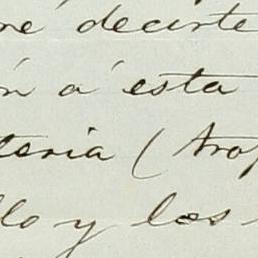 me decirte
n a' esta
teria (tro
llo y los